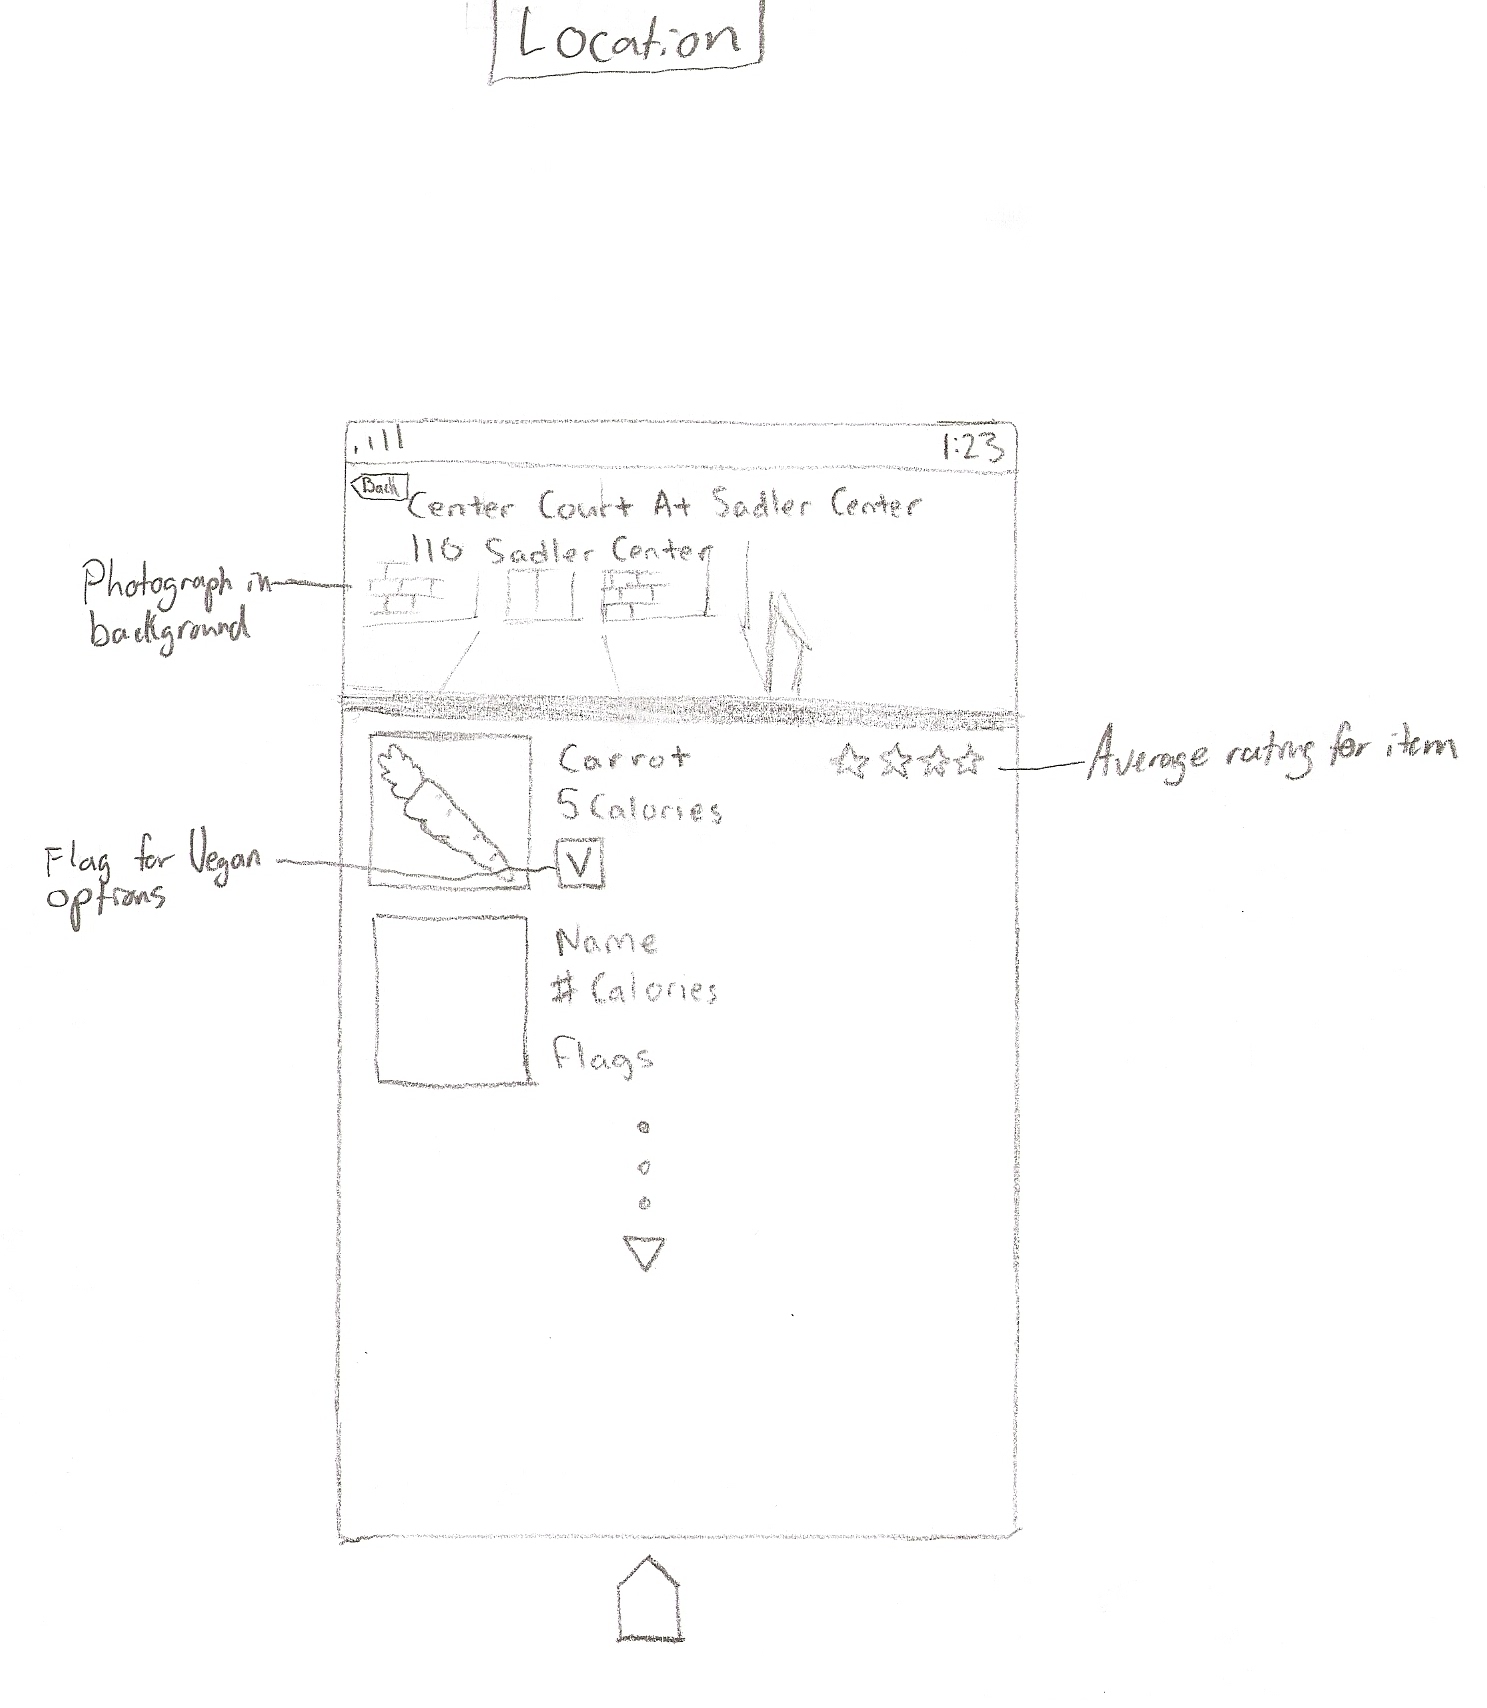 Location
1:23
Back
Center Court At Sadler Center
110 Sadler Center
Photograph in
background
Carrot
Average rating for item
5 Calories
Flag for Vegan
options
V
Name
# Calories
Flags